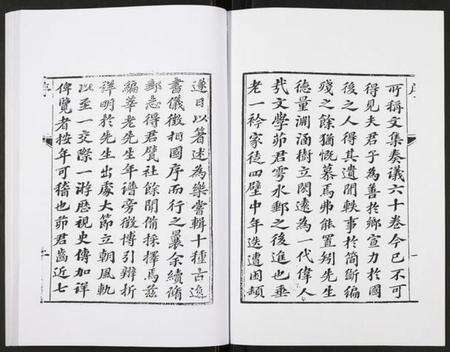 可稱文集奏議六十卷今已不可
得見夫君子為善於鄉宣力於國
後之人得其遺聞軼事於簡斷編
殘之餘猶慨慕馬弗能置矧先生
德量淵涵樹立閎遠為一代偉人
哉文學茆君雲水鄉之後進也垂
老一衿家徒四壁中年迭遭困頓
遂日以著述為樂嘗輯十種古逸
書儀徵相國序而行之曩余續脩
郵志得君贊社餘聞備採擇焉茲
編萃老先生年譜旁徵博引辨析
詳明於先生出處大節立朝風軌
以至一交際一游歷視史傳加詳
俾覽者按年可稽也茆君齒近七
序
序